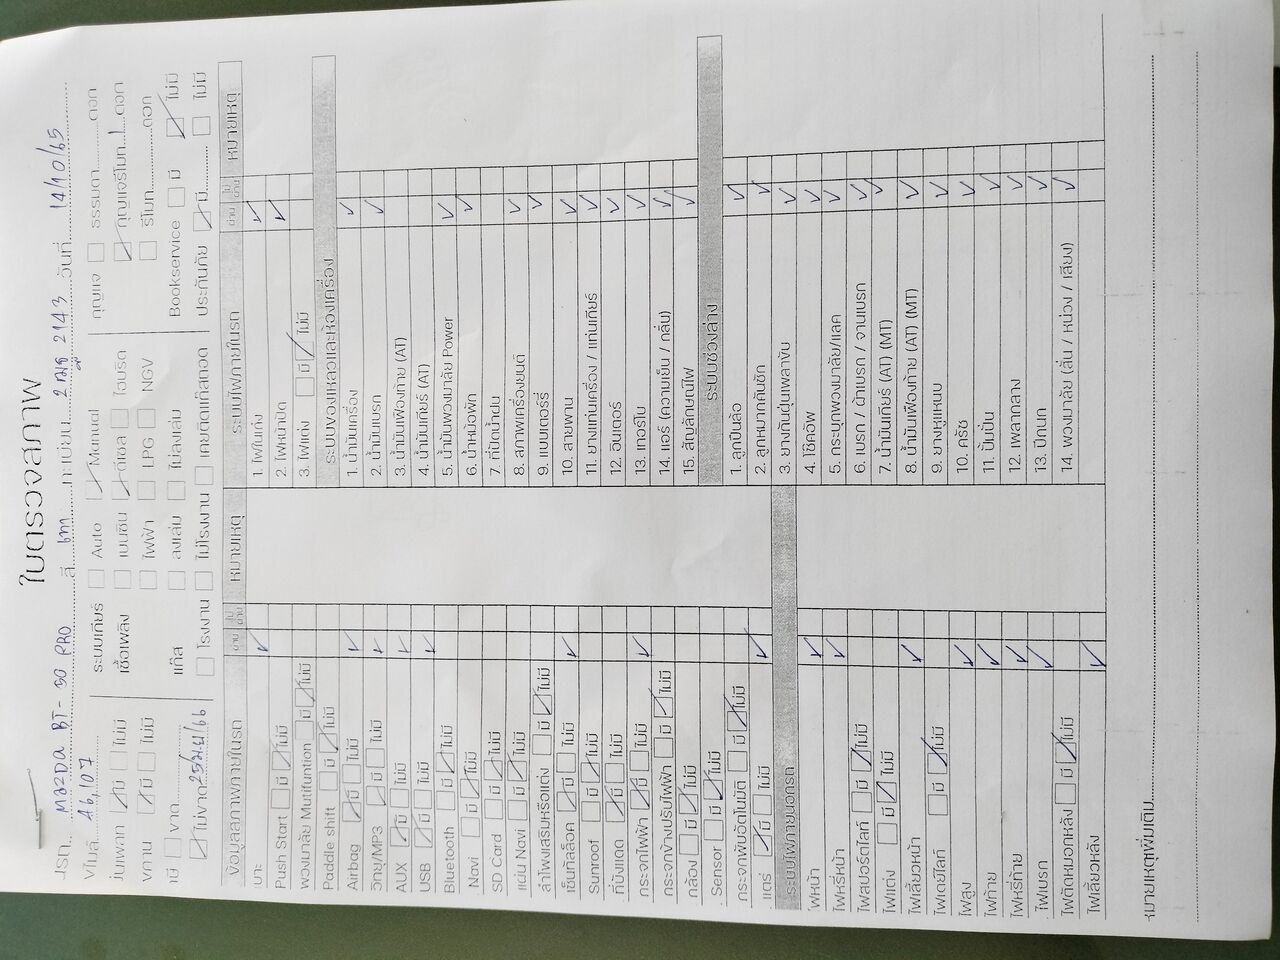 ใบตรวจสภาพ
รุ่นรถ.. Mazda BT-50 PRO สี เทา ทะเบียน.. 2143 วันที่ 14/10/65
ใช้ไมล์.. 46,107 ระบบเกียร์ Auto Manual กุญแจ ธรรมดา..........ดอก
รุ่นแผ่เพลท มี ไม่มี เชื้อเพลิง เบนซิน ดีเซล ไฮบริด กุญแจรีโมท..1..ดอก
มี ไม่มี ไฟฟ้า LPG NGV รีโมท..........ดอก
ภาษี ขาด แก๊ส ลงเล่ม ไม่ลงเล่ม Bookservice มี ไม่มี
ไม่ขาด 25 เม.ย/66 โรงงาน ไม่โรงงาน เคยติดแก๊สถอด ประกันภัย มี.......... ไม่มี
ข้อมูลสภาพภายในรถ ผ่าน ไม่ผ่าน หมายเหตุ
เบาะ
Push Start มี ไม่มี
พวงมาลัย Mutifuntion มี ไม่มี
Paddle shift มี ไม่มี
Airbag มี ไม่มี
วิทยุ/MP3 มี ไม่มี
AUX มี ไม่มี
USB มี ไม่มี
Bluetooth มี ไม่มี
Navi มี ไม่มี
SD Card มี ไม่มี
แผ่น Navi มี ไม่มี
ลำโพงเสริมหรือแต่ง มี ไม่มี
เซ็นทัลล็อค มี ไม่มี
Sunroof มี ไม่มี
ที่บังแดด มี ไม่มี
กระจกไฟฟ้า มี ไม่มี
กระจกข้างปรับไฟฟ้า มี ไม่มี
กล้อง มี ไม่มี
Sensor มี ไม่มี
กระจกพับอัตโนมัติ มี ไม่มี
แตร์ มี ไม่มี
ระบบไฟภายนอกรถ
ไฟหน้า
ไฟหรี่หน้า
ไฟสปอร์ตไลท์ มี ไม่มี
ไฟแต่ง มี ไม่มี
ไฟเลี้ยวหน้า
ไฟเดย์ไลท์ มี ไม่มี
ไฟสูง
ไฟท้าย
ไฟหรี่ท้าย
ไฟเบรก
ไฟตัดหมอกหลัง มี ไม่มี
ไฟเลี้ยวหลัง
ระบบไฟภายในรถ ผ่าน ไม่ผ่าน หมายเหตุ
1. ไฟในเก๋ง
2. ไฟหน้าปัด
3. ไฟแต่ง มี ไม่มี
ระบบของเหลวและห้องเครื่อง
1. น้ำมันเครื่อง
2. น้ำมันเบรก
3. น้ำมันเฟืองท้าย (AT)
4. น้ำมันเกียร์ (AT)
5. น้ำมันพวงมาลัย Power
6. น้ำหม้อพัก
7. ที่ฉีดน้ำฝน
8. สภาพเครื่องยนต์
9. แบตเตอร์รี่
10. สายพาน
11. ยางแท่นเครื่อง / แท่นเกียร์
12. อินเตอร์
13. เทอร์โบ
14. แอร์ (ความเย็น / กลิ่น)
15. สัญลักษณ์ไฟ
ระบบช่วงล่าง
1. ลูกปืนล้อ
2. ลูกหมากคันชัก
3. ยางกันฝุ่นเพลาขับ
4. โช๊คอัพ
5. กระปุกพวงมาลัย/แลค
6. เบรก / ผ้าเบรก / จานเบรก
7. น้ำมันเกียร์ (AT) (MT)
8. น้ำมันเฟืองท้าย (AT) (MT)
9. ยางหูแหนบ
10. ครัช
11. ปั๊มปั่น
12. เพลากลาง
13. ปีกนก
14. พวงมาลัย (สั่น / หน่วง / เสียง)
หมายเหตุเพิ่มเติม